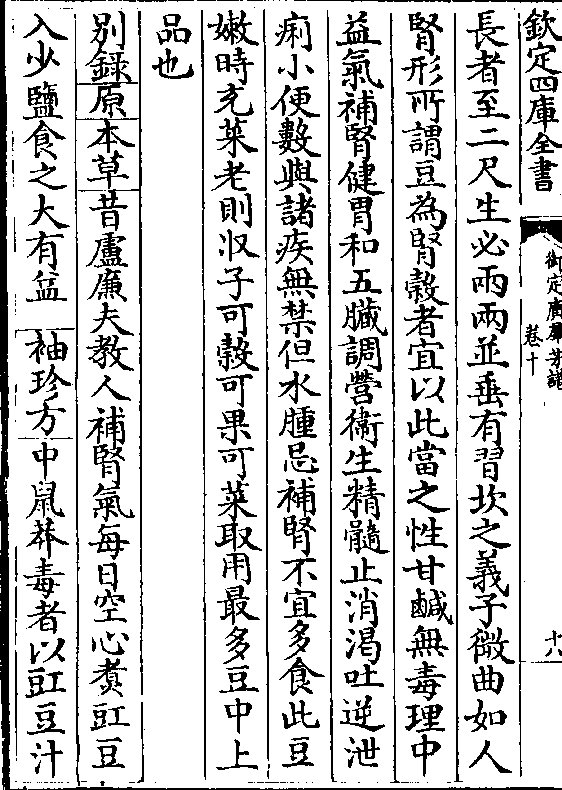 欽定四庫全書
御定廣羣芳譜
卷十
十八
長者至二尺生必兩兩並垂有習坎之義子微曲如人
腎形所謂豆為腎穀者宜以此當之性甘鹹無毒理中
益氣補腎健胃和五臟調營衛生精髓止消渴吐逆泄
痢小便數與諸疾無禁但水腫忌補腎不宜多食此豆
嫩時充菜老則收子可穀可果可菜取用最多豆中上
品也
別錄原本草昔盧廉夫教人補腎氣每日空心煮豇豆
入少鹽食之大有益 袖珍方中鼠莽毒者以豇豆汁